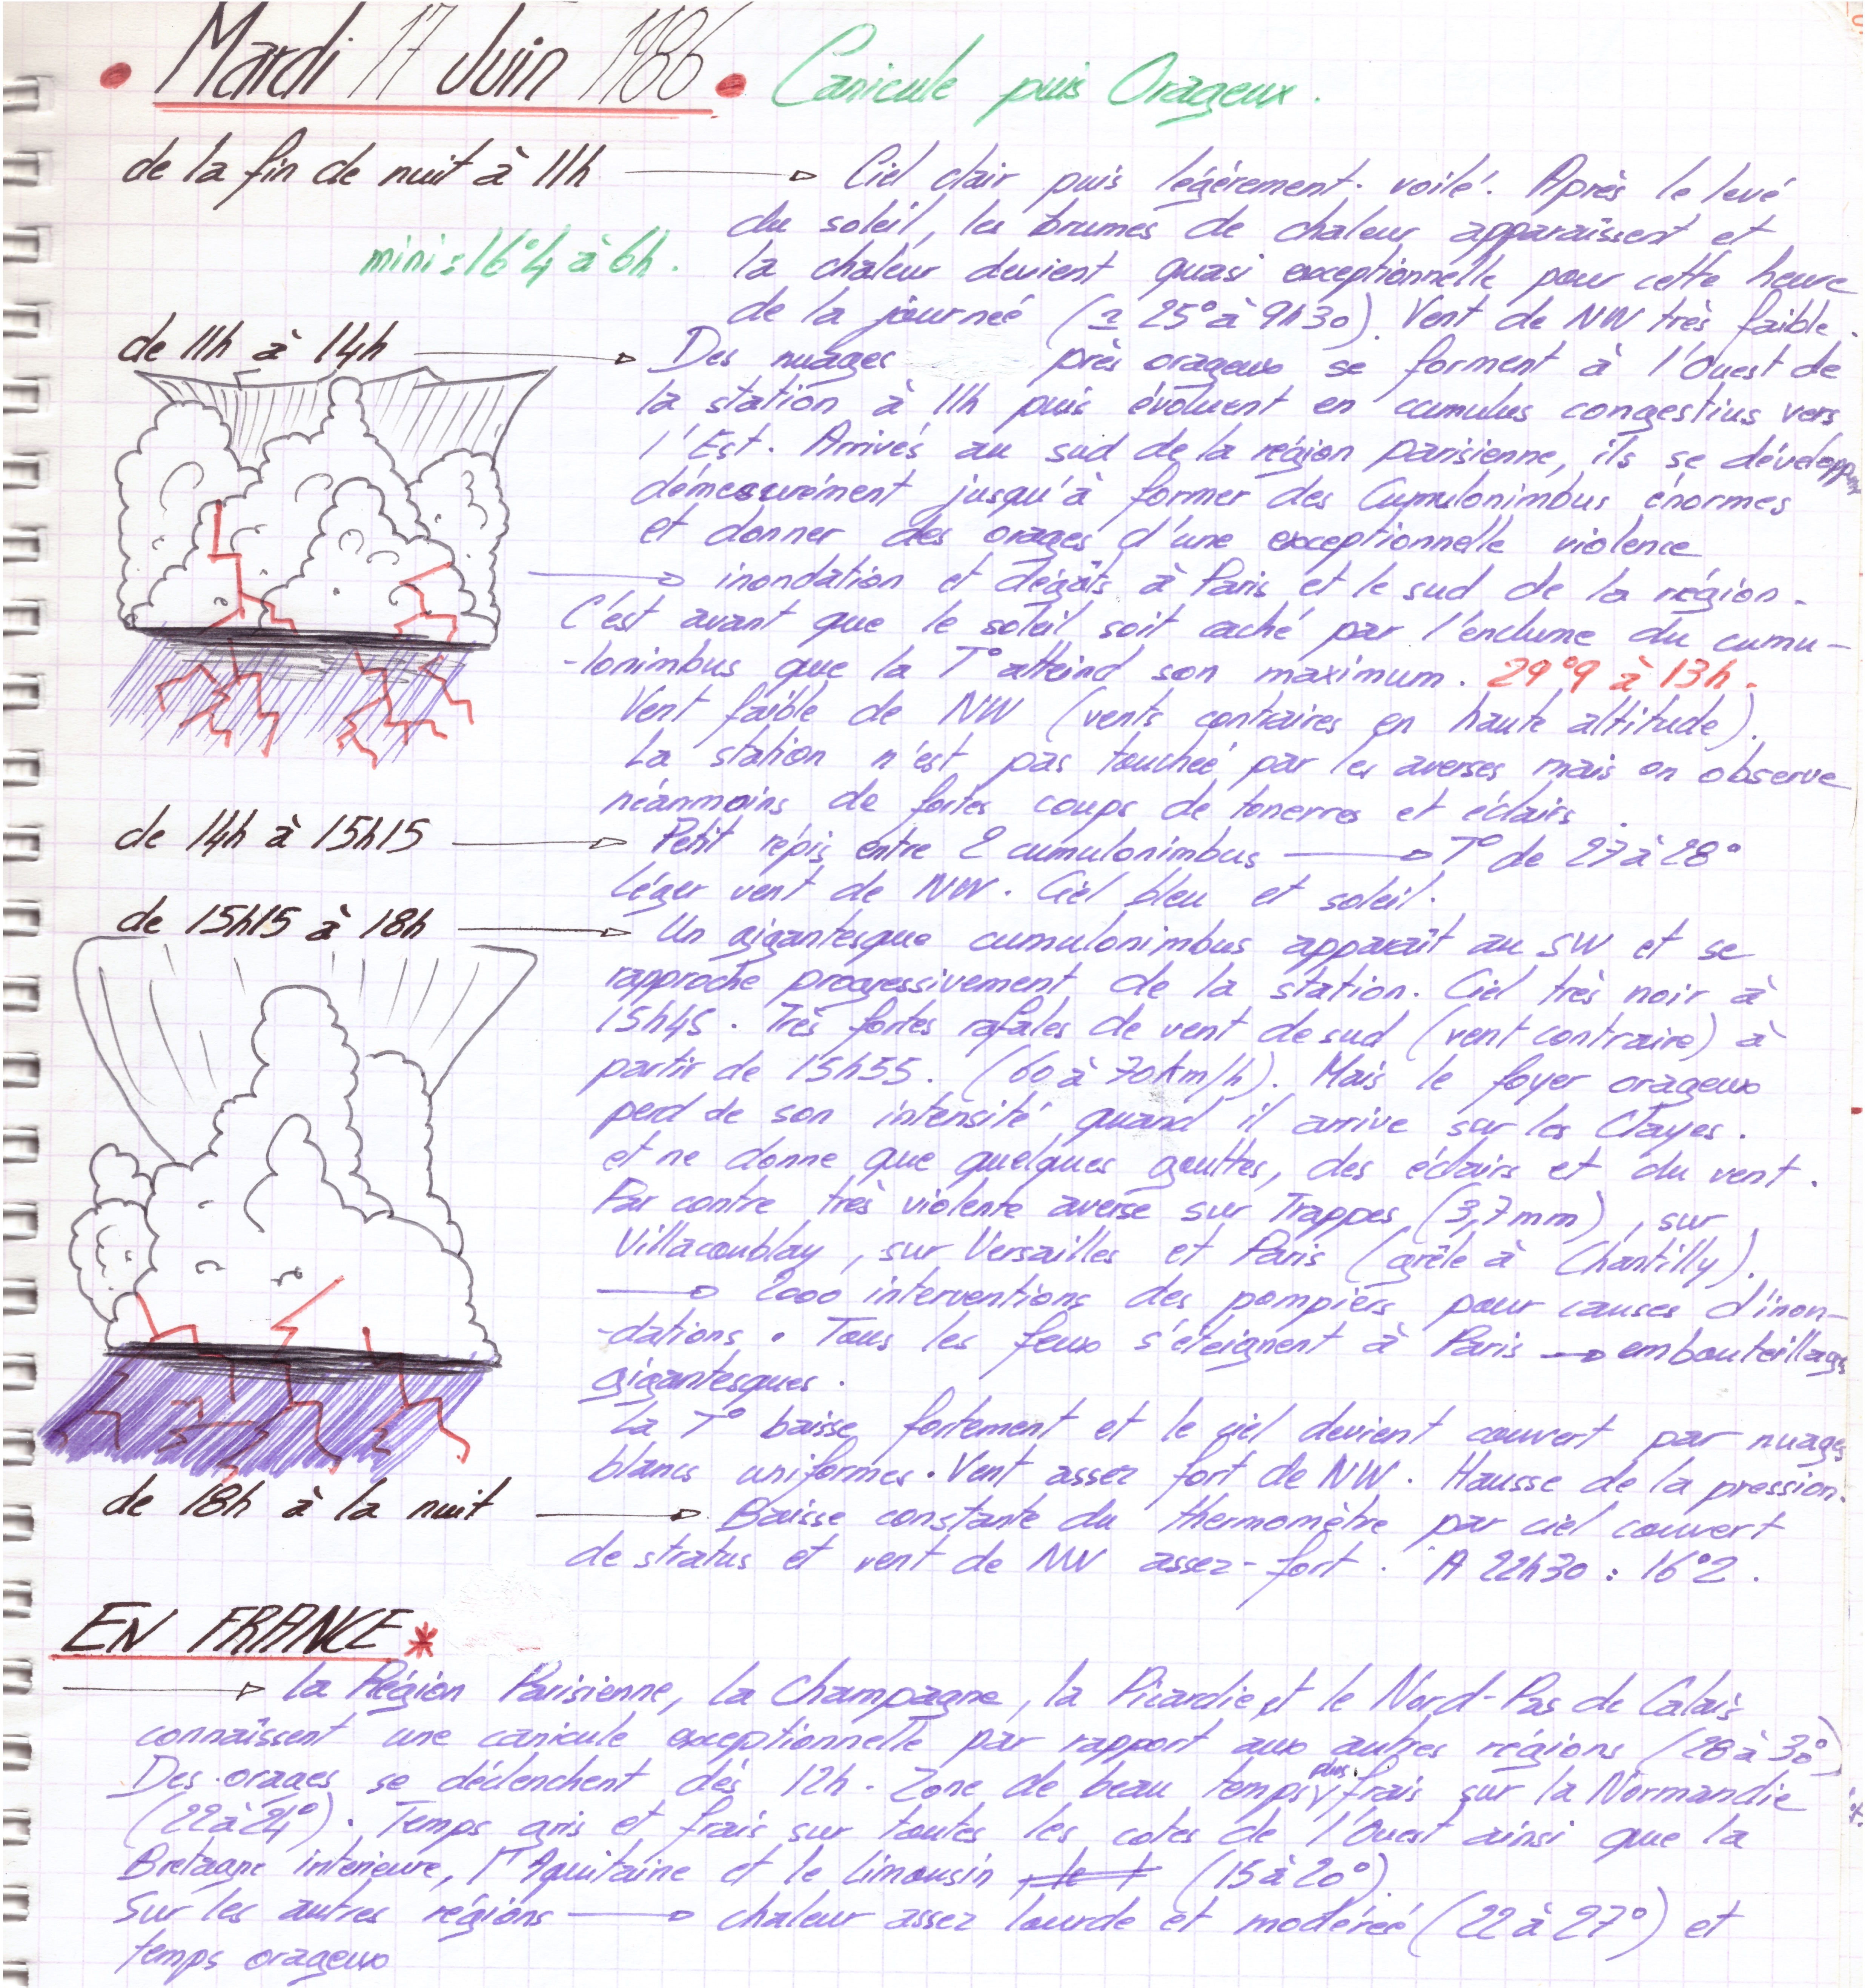 Mardi 17 Juin 1986 Canicule puis Orageux.
de la fin de nuit à 11h Ciel clair puis légérement voilé. Après le levé
du soleil, les brumes de chaleur apparaissent et
mini : 16°4 à 6h. la chaleur devient quasi exceptionnelle pour cette heure
de la journeé (≃ 25° à 9h30). Vent de NW très faible.
de 11h à 14h Des nuages près orageux se forment à l'Ouest de
la station à 11h puis évoluent en cumulus congestius vers
l'Est. Arrivés au sud de la région parisienne, ils se développent
démesurément jusqu'à former des Cumulonimbus énormes
et donner des orages d'une exceptionnelle violence
inondation et dégâts à Paris et le sud de la région.
C'est avant que le soleil soit caché par l'enclume du cumu-
-lonimbus que la T° atteind son maximum. 29°9 à 13h.
Vent faible de NW (vents contraires en haute altitude).
La station n'est pas toucheé par les averses mais on observe
néanmoins de fortes coups de tonerres et éclairs.
de 14h à 15h15 Petit répis entre 2 cumulonimbus T° de 27 à 28°
Léger vent de NW. Ciel bleu et soleil.
de 15h15 à 18h Un gigantesque cumulonimbus apparaît au SW et se
rapproche progressivement de la station. Ciel très noir à
15h45. Très fortes rafales de vent de sud (vent contraire) à
partir de 15h55. (60 à 70 km/h). Mais le foyer orageux
perd de son intensité quand il arrive sur les Clayes.
et ne donne que quelques gouttes, des éclairs et du vent.
Par contre très violente averse sur Trappes (3,7mm), sur
Villacoublay, sur Versailles et Paris (grêle à Chantilly).
2000 interventions des pompiers pour causes d'inon-
-dations. Tous les feux s'éteignent à Paris embouteillages
gigantesques.
La T° baisse fortement et le ciel devient couvert par nuages
blancs uniformes. Vent assez fort de NW. Hausse de la pression.
de 18h à la nuit Baisse constante du thermomètre par ciel couvert
de stratus et vent de NW assez-fort. A 22h30 : 16°2.
EN FRANCE*
la Région Parisienne, la Champagne, la Picardie et le Nord-Pas de Calais
connaissent une canicule exceptionnelle par rapport aux autres régions (28 à 30°)
Des orages se déclenchent dès 12h. Zone de beau temps plus frais sur la Normandie
(22 à 24°). Temps gris et frais sur toutes les cotes de l'Ouest ainsi que la
Bretagne intérieure, l'Aquitaine et le limousin (15 à 20°).
Sur les autres régions chaleur assez lourde et modéreé (22 à 27°) et
temps orageux